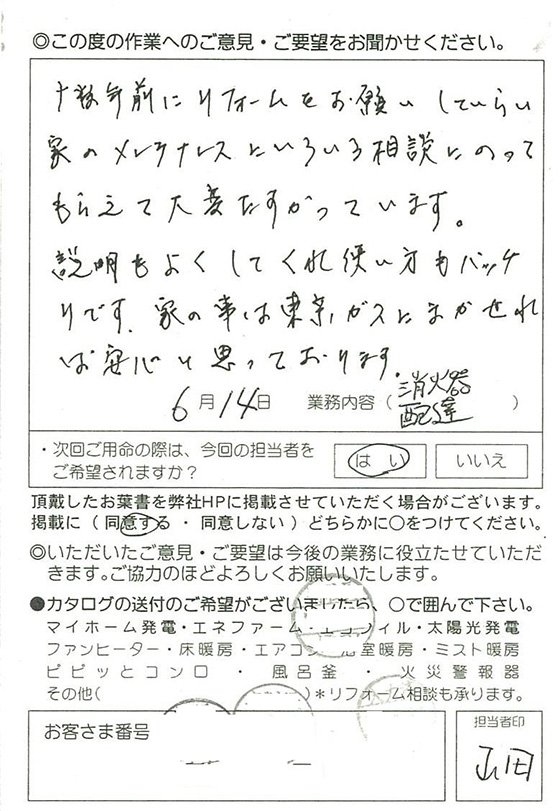 ◎この度の作業へのご意見・ご要望をお聞かせください。
十数年前にリフォームをお願いしていらい
家のメンテナンスにいろいろ相談にのって
もらえて大変たすかっています。
説明もよくしてくれ使い方もバッチ
リです。家の事は東京ガスにまかせれ
ば安心と思っております。
6月14日 業務内容(消火器
配達)
・次回ご用命の際は、今回の担当者を
ご希望されますか?
はい いいえ
頂戴したお葉書を弊社HPに掲載させていただく場合がございます。
掲載に(同意する・同意しない)どちらかに○をつけてください。
◎いただいたご意見・ご要望は今後の業務に役立たせていただ
きます。ご協力のほどよろしくお願いいたします。
●カタログの送付のご希望がございましたら、○で囲んで下さい。
マイホーム発電・エネファーム・エコウィル・太陽光発電
ファンヒーター・床暖房・エアコン・浴室暖房・ミスト暖房
ピピッとコンロ ・ 風呂釜 ・ 火災警報器
その他( )*リフォーム相談も承ります。
お客さま番号
担当者印
山田